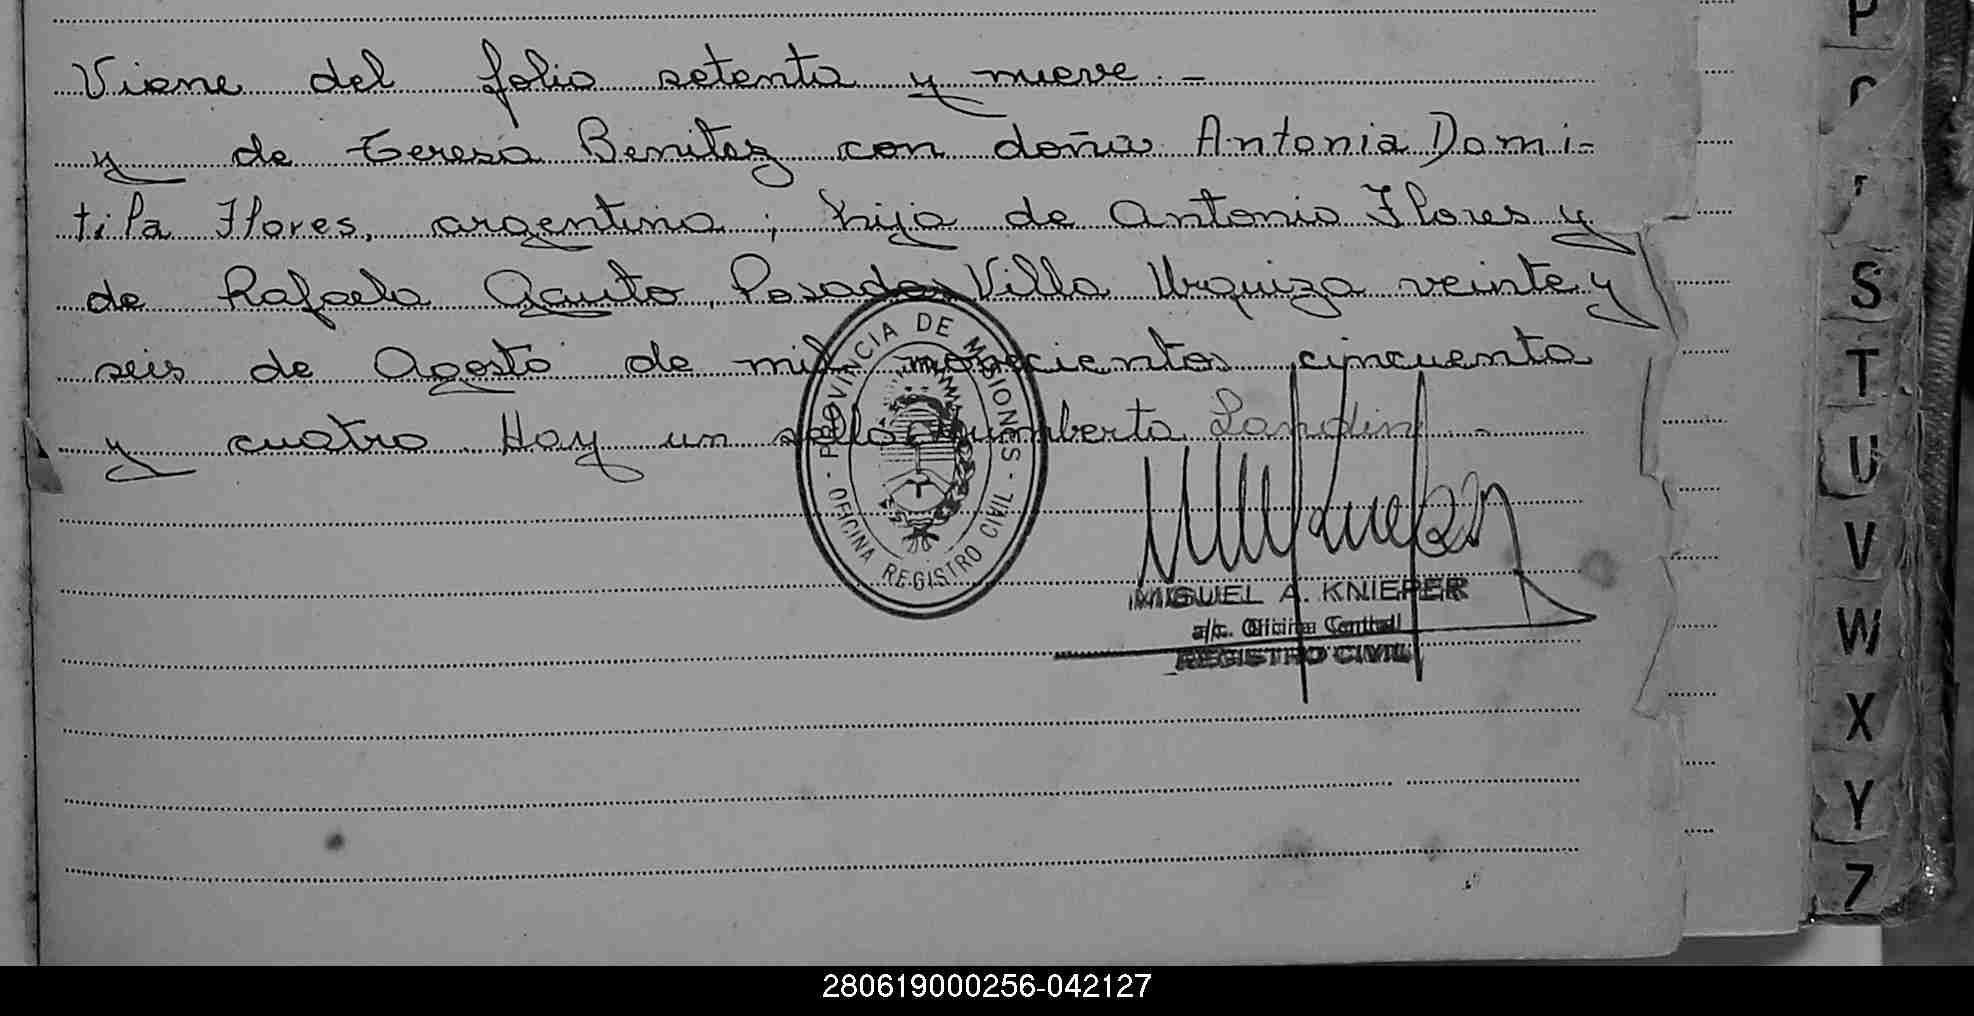 Viene del folio setenta y nueve. -
y de Teresa Benitez con doña Antonia Domi-
tila Flores, argentina; hija de Antonio Flores y
de Rafaela Gauto, Posadas Villa Urquiza veinte y
seis de Agosto de mil novecientos cincuenta
y cuatro. Hay un sello Humberto Landin. -
PROVINCIA DE MISIONES
- OFICINA REGISTRO CIVIL -
MIGUEL A. KNIEPER
a/c. Oficina Central
REGISTRO CIVIL
P
S
T
U
V
W
X
Y
Z
280619000256-042127